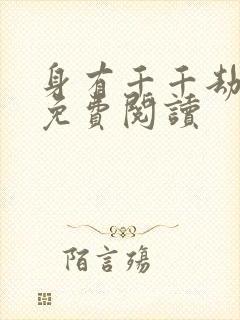 身有千千劫
免費閱讀
陌言殤